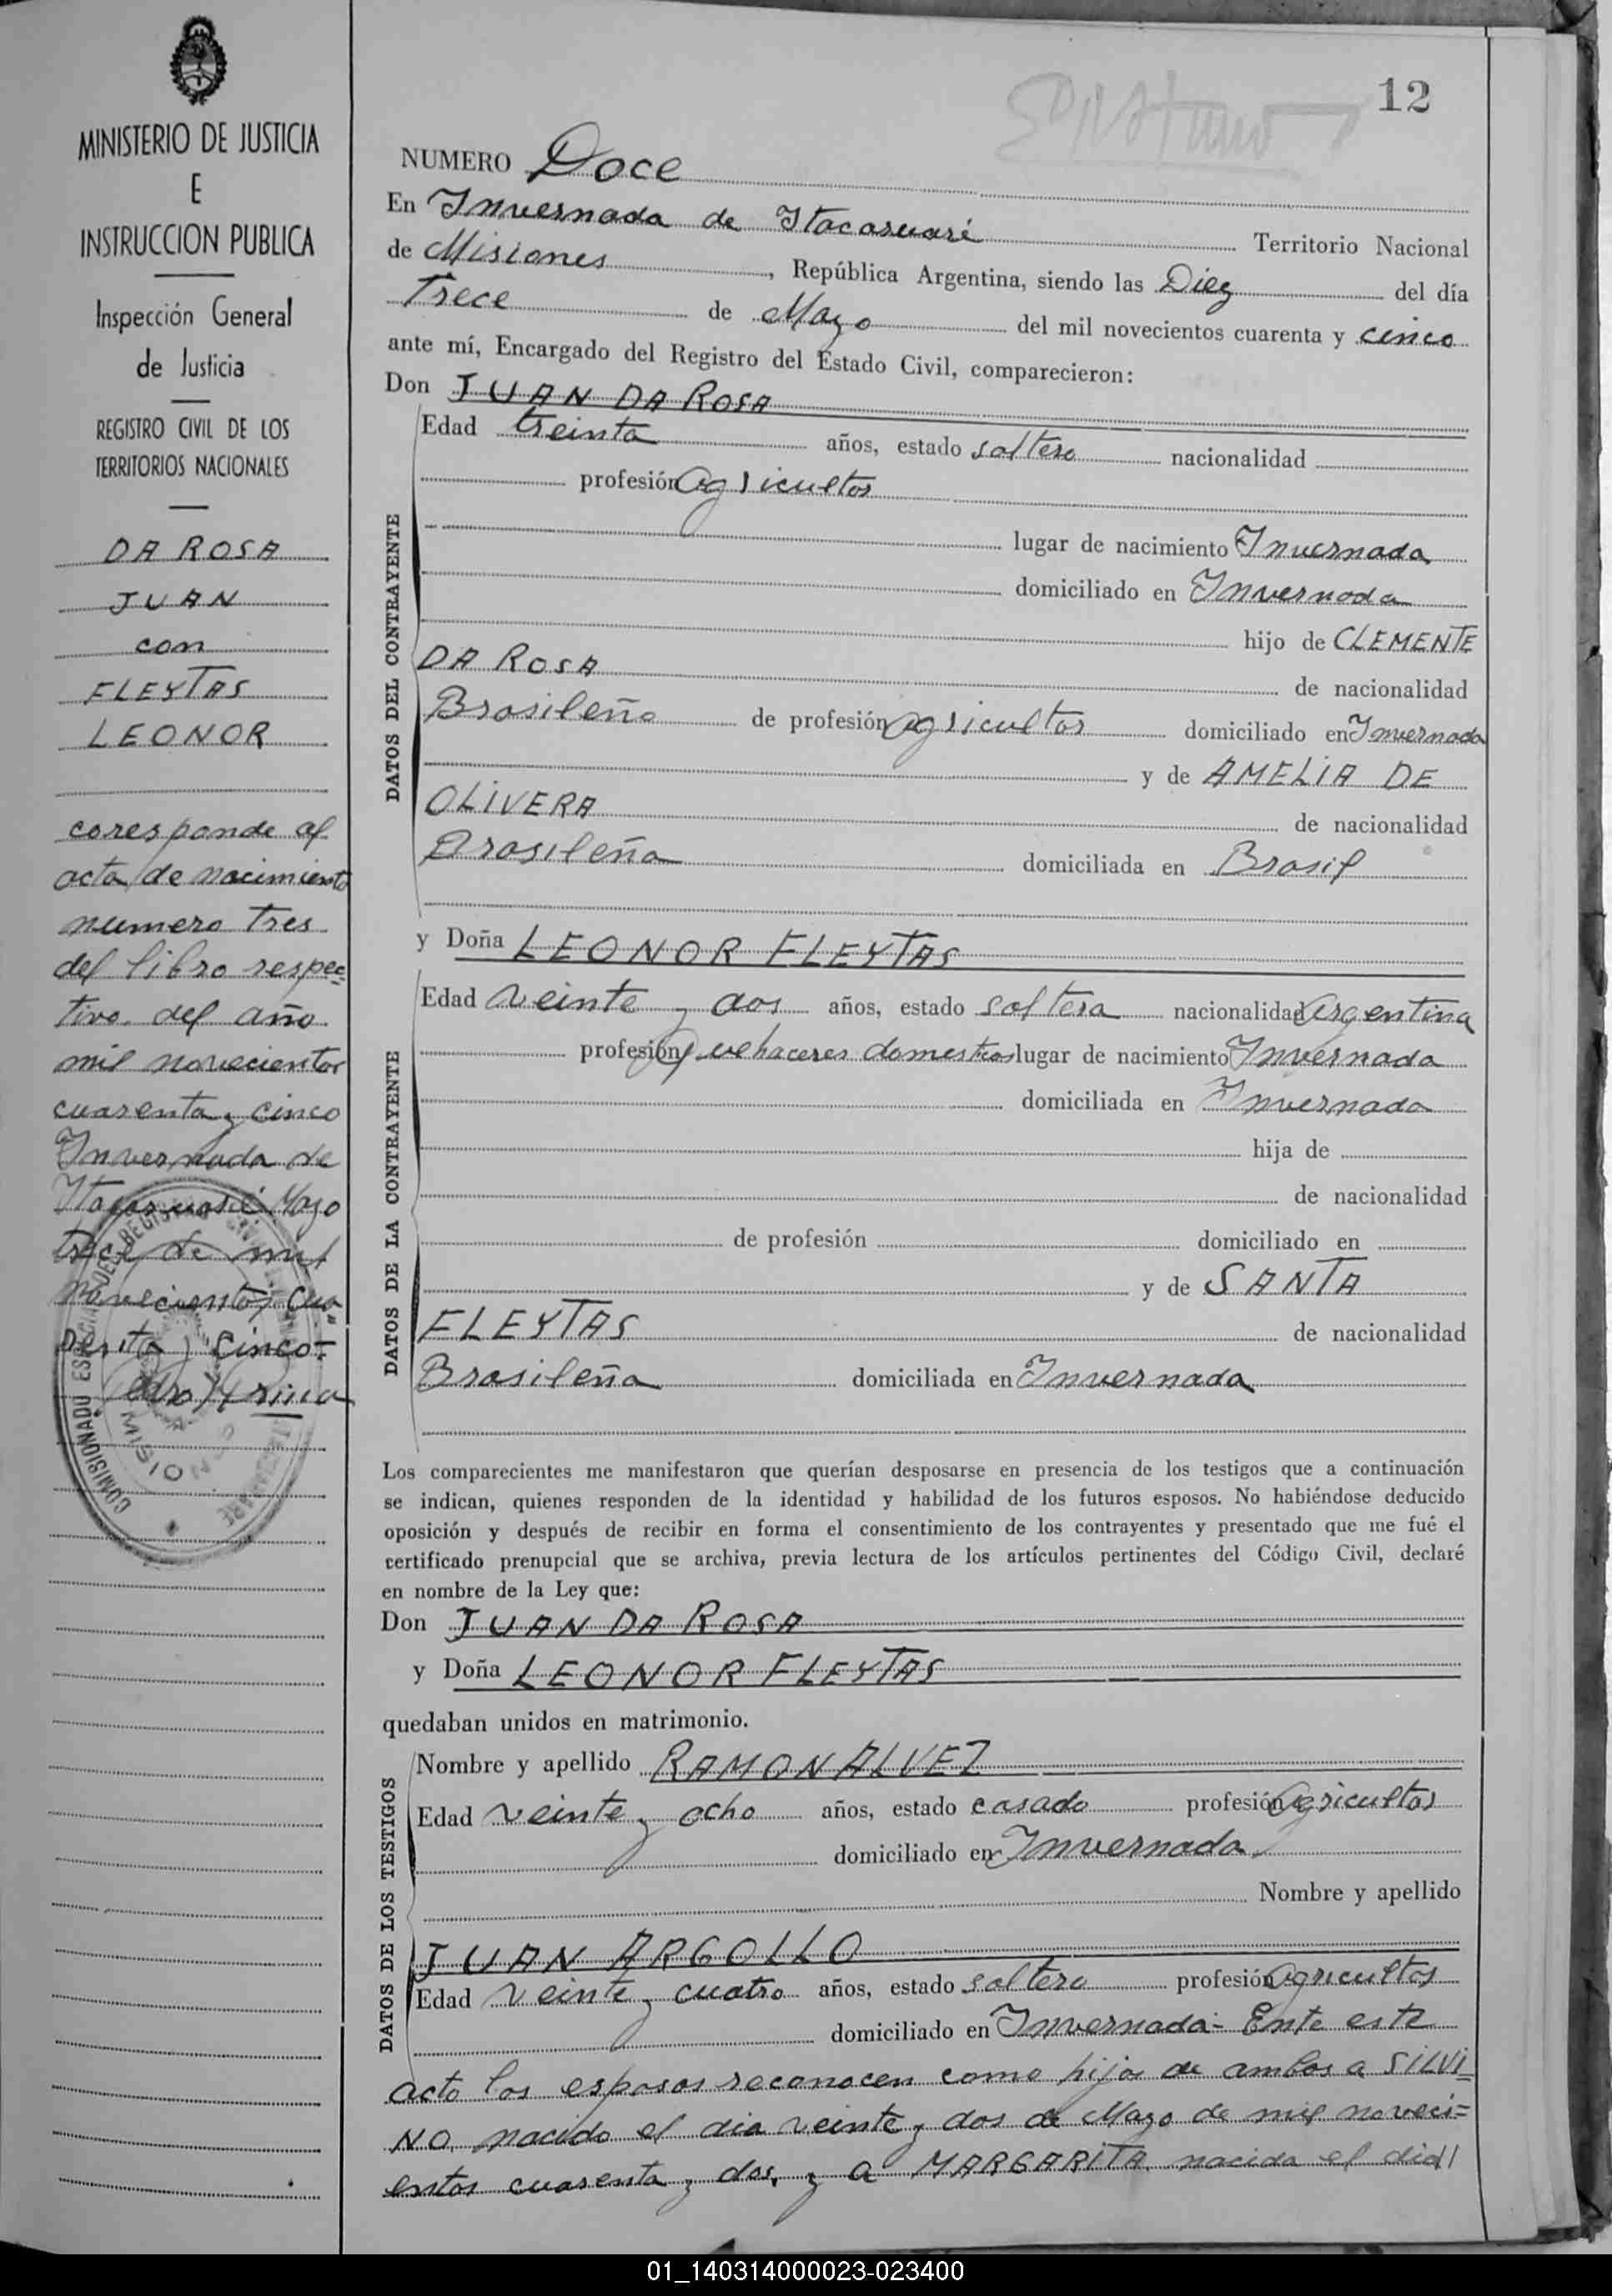 MINISTERIO DE JUSTICIA
E
INSTRUCCION PUBLICA
Inspección General
de Justicia
REGISTRO CIVIL DE LOS
TERRITORIOS NACIONALES
DA ROSA
JUAN
con
FLEYTAS
LEONOR
coresponde al
acta de nacimiento
numero tres
del libro respec=
tivo del año
mil novecientos
cuarenta y cinco
Invernada de
Itacaruaré Mayo
trece de mil
novecientos cua
renta y cinco=
12
NUMERO Doce
En Invernada de Itacaruaré Territorio Nacional
de Misiones, República Argentina, siendo las Diez del día
Trece de Mayo del mil novecientos cuarenta y cinco
ante mí, Encargado del Registro del Estado Civil, comparecieron:
Don JUAN DA ROSA
DATOS DEL CONTRAYENTE
Edad treinta años, estado soltero nacionalidad
profesión Agricultor
lugar de nacimiento Invernada
domiciliado en Invernada
hijo de CLEMENTE
DA ROSA de nacionalidad
Brasileño de profesión Agricultor domiciliado en Invernada
y de AMELIA DE
OLIVERA de nacionalidad
Brasileña domiciliada en Brasil
y Doña LEONOR FLEYTAS
DATOS DE LA CONTRAYENTE
Edad veinte y dos años, estado soltera nacionalidad Argentina
profesión Quehaceres domesticos lugar de nacimiento Invernada
domiciliada en Invernada
hija de
de nacionalidad
de profesión domiciliado en
y de SANTA
FLEYTAS de nacionalidad
Brasileña domiciliada en Invernada
Los comparecientes me manifestaron que querían desposarse en presencia de los testigos que a continuación
se indican, quienes responden de la identidad y habilidad de los futuros esposos. No habiéndose deducido
oposición y después de recibir en forma el consentimiento de los contrayentes y presentado que me fué el
certificado prenupcial que se archiva, previa lectura de los artículos pertinentes del Código Civil, declaré
en nombre de la Ley que:
Don JUAN DA ROSA
y Doña LEONOR FLEYTAS
quedaban unidos en matrimonio.
DATOS DE LOS TESTIGOS
Nombre y apellido RAMON ALVEZ
Edad veinte y ocho años, estado casado profesión Agricultor
domiciliado en Invernada
Nombre y apellido
JUAN ARGOLLO
Edad veinte y cuatro años, estado soltero profesión Agricultor
domiciliado en Invernada= Ente este
acto los esposos reconocen como hijos de ambos a SILVI=
NO, nacido el dia veinte y dos de Mayo de mil noveci=
entos cuarenta y dos, y a MARGARITA nacida el dia
01_140314000023-023400